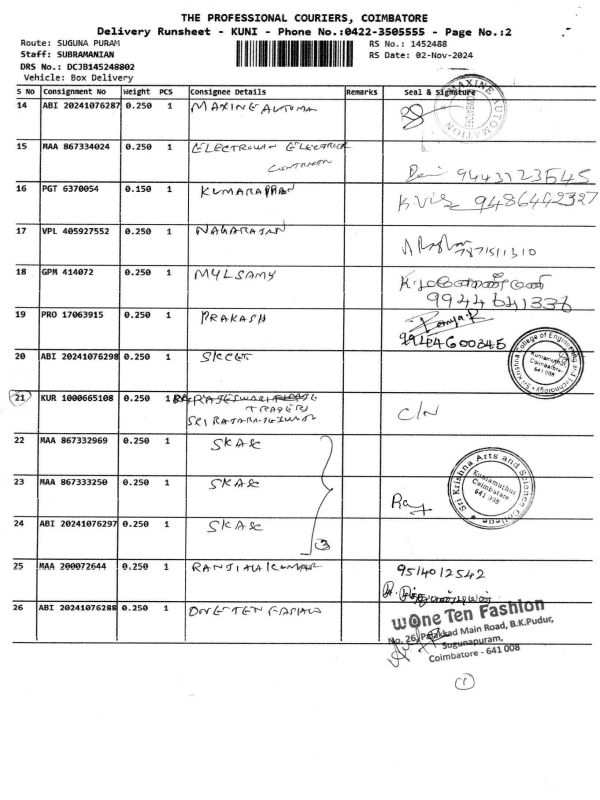 THE PROFESSIONAL COURIERS, COIMBATORE
Delivery Runsheet - KUNI - Phone No.:0422-3505555 - Page No.:2
Route: SUGUNA PURAM
RS No.: 1452488
Staff: SUBRAMANIAN
RS Date: 02-Nov-2024
DRS No.: DCJB145248802
Vehicle: Box Delivery
S No Consignment No Weight PCS Consignee Details Remarks Seal & Signature
14 ABI 20241076287 0.250 1 MAXINE AUTOMA
MAXINE AUTOMATION
15 MAA 867334024 0.250 1
9443123545
16 PGT 6370054 0.150 1 KUMARAPPAN
9486442327
17 VPL 405927552 0.250 1 NAGARAJAN
7871511310
18 GPM 414072 0.250 1 MYLSAMY
9944641336
19 PRO 17063915 0.250 1 PRAKASH
Ramya.R
9944600345
20 ABI 20241076298 0.250 1 SKCET
Sri Krishna College of Engineering and Technology
Kuniamuthur
Coimbatore
641 008
21 KUR 1000665108 0.250 1
TRADERS
C/N
22 MAA 867332969 0.250 1 SKASC
23 MAA 867333250 0.250 1 SKASC
Sri Krishna Arts and Science College
Kuniamuthur
Coimbatore
641 008
24 ABI 20241076297 0.250 1 SKASC
3
25 MAA 200072644 0.250 1
9514012542
26 ABI 20241076288 0.250 1 ONE TEN
wOne Ten Fashion
No. 26, Palakkad Main Road, B.K.Pudur,
Sugunapuram,
Coimbatore - 641 008
1